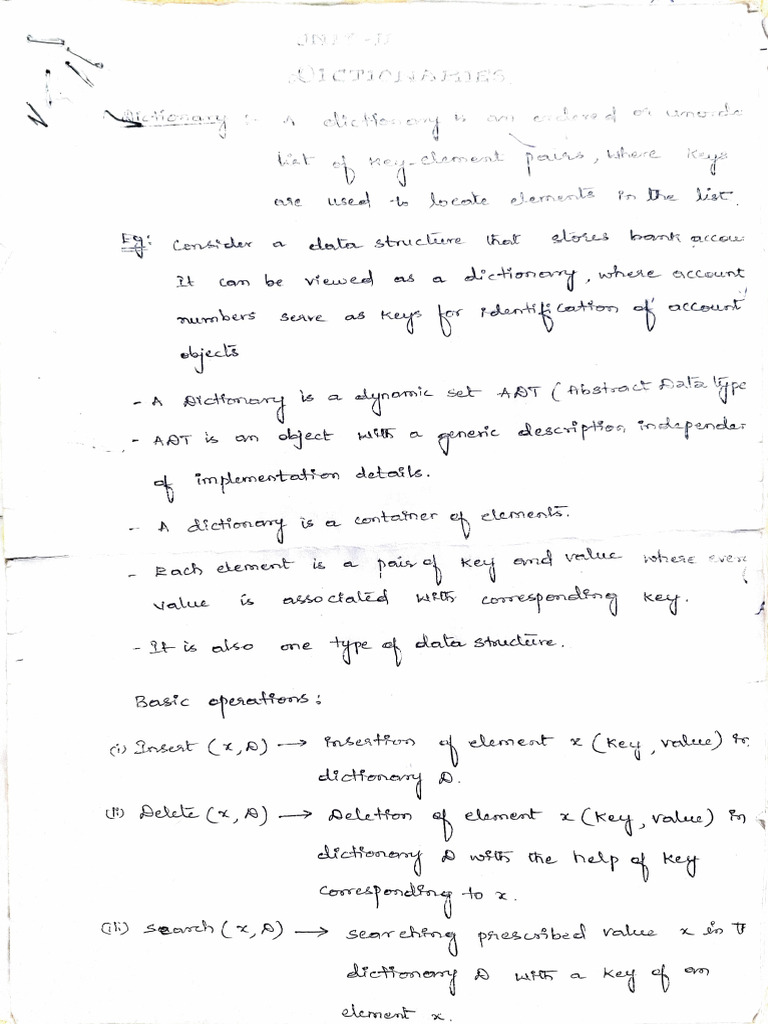 DICTIONARIES
Dictionary :- A dictionary is an ordered or unorde
list of key-element pairs, where keys
are used to locate elements in the list.
Eg: Consider a data structure that stores bank accou
It can be viewed as a dictionary, where account
numbers serve as keys for identification of account
objects
- A Dictionary is a dynamic set ADT (Abstract Data type
- ADT is an object with a generic description independen
of implementation details.
- A dictionary is a container of elements.
- Each element is a pair of key and value where every
value is associated with corresponding key.
- It is also one type of data structure.
Basic operations:
(i) Insert (x, D) → insertion of element x (key, value) in
dictionary D.
(ii) Delete (x, D) → Deletion of element x (key, value) in
dictionary D with the help of key
corresponding to x.
(iii) search (x, D) → searching prescribed value x in t
dictionary D with a key of an
element x.